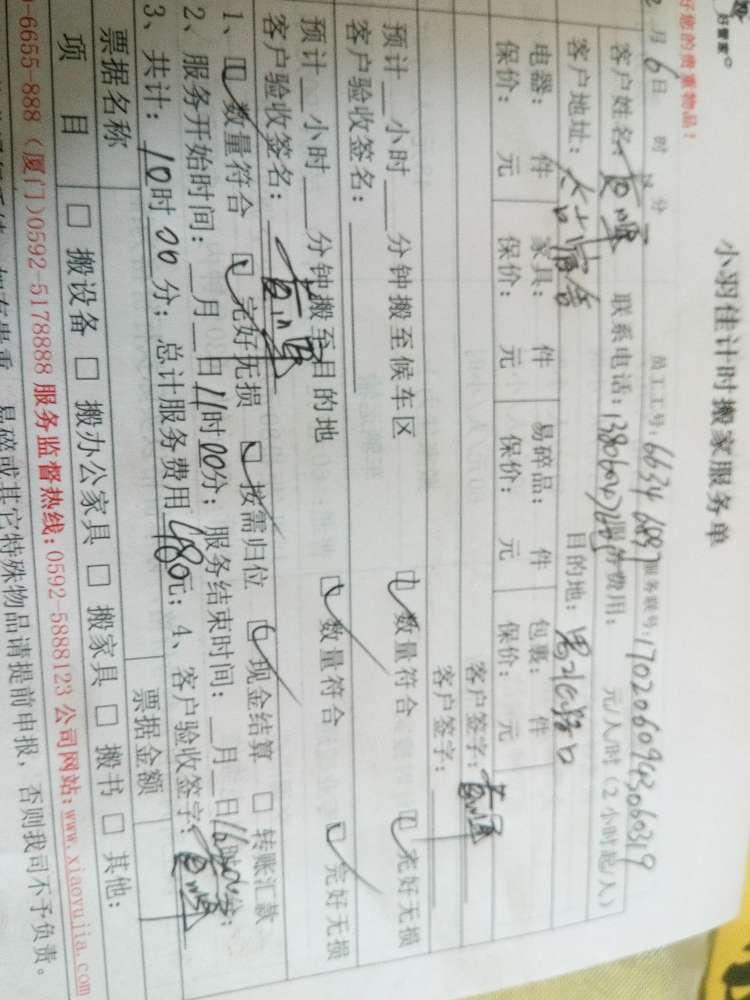 好管家
好您的贵重物品!
小羽佳计时搬家服务单
月6日 时 分 员工工号: 6634 6887 服务联号: 1702060943060319
客户姓名: 联系电话: 服务费用: 元/人/时(2小时起/人)
客户地址: 目的地:
电器: 件 家具: 件 易碎品: 件 包裹: 件
保价: 元 保价: 元 保价: 元 保价: 元
客户签字:
客户签字:
预计__小时___分钟搬至候车区 数量符合 完好无损
客户验收签名:
预计__小时___分钟搬至目的地 数量符合 完好无损
客户验收签名:
1、 数量符合 完好无损 按需归位 现金结算 □ 转账汇款
2、服务开始时间: __月__日11时00分; 服务结束时间: __月__日16时 分;
3、共计: 10时00分; 总计服务费用480元; 4、客户验收签字:
票据名称 票据金额
项 目 □ 搬设备 □ 搬办公家具 □ 搬家具 □ 搬书 □ 其他:
-6655-888 (厦门)0592-5178888 服务监督热线:0592-5888123 公司网站:www.xiaoyujia.com
易碎或其它特殊物品请提前申报, 否则我司不予负责。